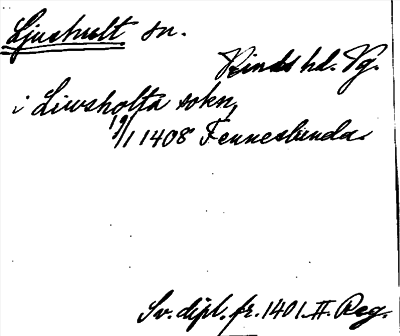 Ljushult sn.
Kinds hd. Vg.
i Liwsholta sokn,
19/1 1408 Tennesbunda
Sv. dipl. fr. 1401. II. Reg.